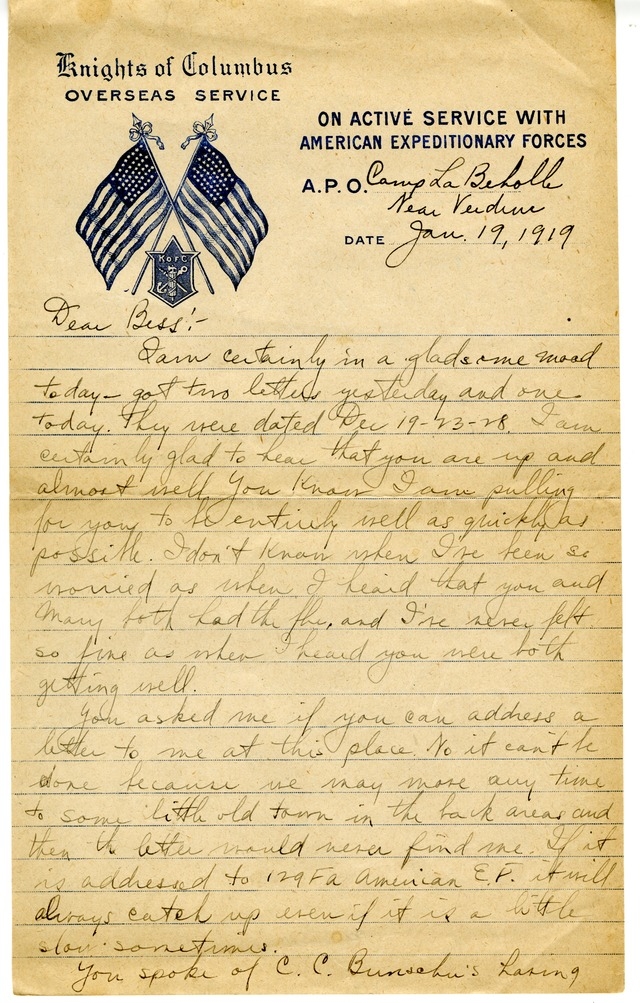 Knights of Columbus
OVERSEAS SERVICE
ON ACTIVE SERVICE WITH
AMERICAN EXPEDITIONARY FORCES
A.P.O. Camp La Beholle
Near Verdun
DATE Jan. 19, 1919
K of C
Dear Bess:-
I am certainly in a gladsome mood
today - got two letters yesterday and one
today. They were dated Dec 19-23-28. I am
certainly glad to hear that you are up and
almost well. You know I am pulling
for you to be entirely well as quickly as
possible. I don't know when I've been so
worried as when I heard that you and
Mary both had the flu, and I've never felt
so fine as when I heard you were both
getting well.
You asked me if you can address a
letter to me at this place. No it can't be
done because we may move any time
to some little old town in the back areas and
then the letter would never find me. If it
is addressed to 129 F a American E.F. it will
always catch up even if it is a little
slow sometimes.
You spoke of C. C. having